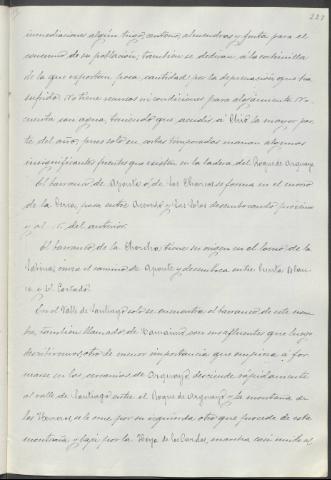 221
inmediaciones algún trigo, centeno, almendras y fruta para el
consumo de su población; tambien se dedican á la cochinilla
de la que exportan poca cantidad por la depreciación que ha
sufrido. No tiene recursos ni condiciones para alojamiento. No
cuenta con agua, teniendo que acudir á Chio la mayor par-
te del año, pues solo en cortas temporadas manan algunas
insignificantes fuentes que existen en la ladera del Roque de Arguayo
El barranco de Aponte ó de Las Charcas se forma en el morro
de la pasa entre y desembocando próximo
y al del anterior.
El barranco de la tiene su origen en el lomo de la
cruza el camino de Aponte y desemboca entre Punta Blan-
ca y El
En el Valle de Santiago solo se encuentra el barranco de este nom-
bre, tambien llamado de con sus afluentes que luego
describiremos; otro de menor importancia que empieza á for-
marse en las cercanias de Arguayo desciende rápidamente
al valle de Santiago entre el Roque de Arguayo y la montaña de
se le une por su izquierda otro que procede de esta
montaña y baja por la Hoya de los Cardos, marcha casi unido al